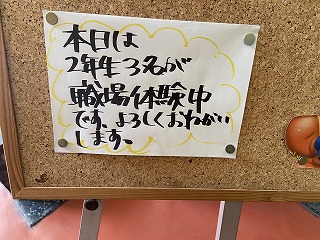 本日は
2年生3名が
職場体験中
です、よろしくおねがい
します。